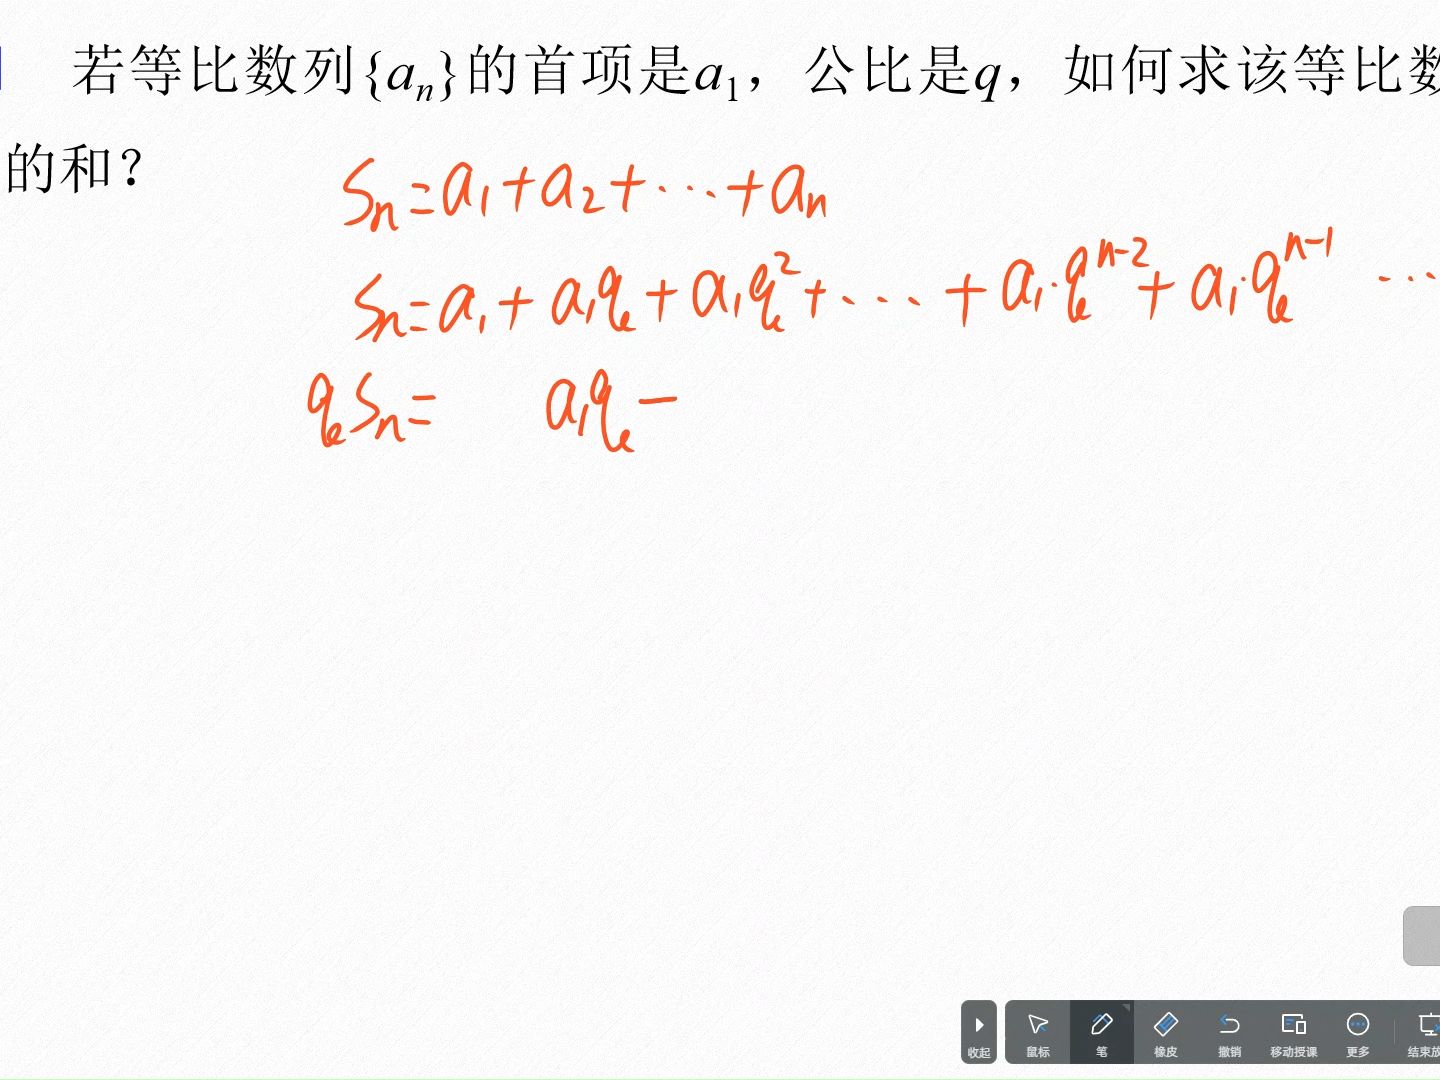 若等比数列{aₙ}的首项是a₁，公比是q，如何求该等比数
的和？
Sₙ=a₁+a₂+···+aₙ
Sₙ=a₁+a₁q+a₁q²+···+a₁·qⁿ⁻²+a₁·qⁿ⁻¹ ···
qSₙ= a₁q −
收起 鼠标 笔 橡皮 撤销 移动授课 更多 结束放